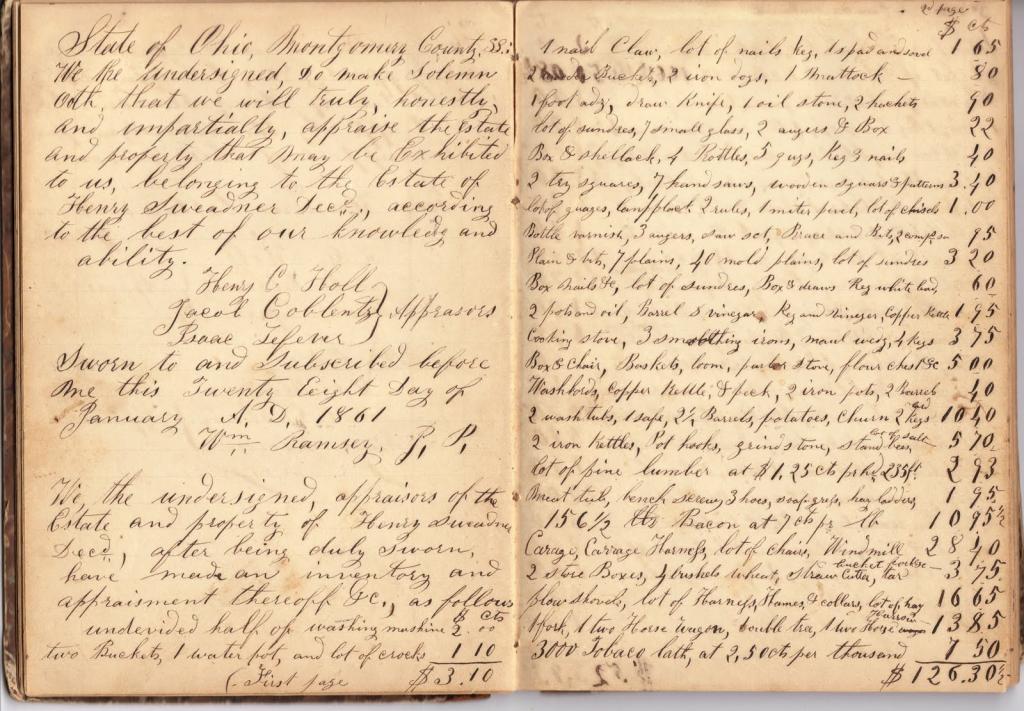 State of Ohio, Montgomery County, SS:
We the undersigned, do make Solemn
Oath, that we will truly, honestly,
and impartially, appraise the Estate
and property that may be Exhibited
to us, belonging to the Estate of
Henry Sweadner Decd., according
to the best of our knowledg and
ability.
Henry C Holl
Jacob Coblentz } Apprasors
Isaac Lefever
Sworn to and Subscribed before
me this Twenty Eeight Day of
January A, D, 1861
Wm Ramsey, J, P,
We, the undersigned, appraisors of the
Estate and property of Henry Sweadner
Decd, after being duly sworn,
have made an inventory and
appraisment thereoff &c., as follows
$ cts
undevided half of washing mashine 2.00
two Buckets, 1 water pot, and lot of crocks 1 10
(First page $3.10
2d page
$ cts
1 nail Claw, lot of nails Keg, 1 spad and 1 65
2 Bucket, 2 iron dogs, 1 Mattock — 80
1 foot adz, draw Knife, 1 oil stone, 2 hachets 90
lot of sundres, 7 small glass, 2 augers & Box 22
Box & shellack, 4 Bottles, 5 gugs, Keg & nails 40
2 try squares, 7 hand saws, wooden squars & patterns 3.40
lot of guages, 2 rules, 1 miter lot of chisels 1.00
Bottle varnish, 3 augers, saw set, Brace and Bits, 95
Plain & bits, 7 plains, 40 mold plains, lot of sundres 3 20
Box nails &c, lot of sundres, Box & draws Keg white lead, 60
2 pots and oil, Barrel & vinegar, Keg and vinegar, Copper Kettle 1.95
Cooking stove, 3 smothing irons, maul wedg, 4 kegs 3 75
Box & Chair, Baskets, loom, parlor stove, flour chest &c 5 00
Washbords, copper Kettle, & peck, 2 iron pots, 2 Barrels 40
2 wash tubs, 1 safe, 2½ Barrels, potatoes, Churn 2 Kegs lard 10 40
2 iron Kettles, Pot hooks, grindstone, stand bees, 5 70
lot of pine lumber at $1,25 cts pr hd, 235 ft 2 93
Meat tub, bench screws, 3 hoes, soap gres, hay ladders, 1 95
156 1/2 lbs Bacon at 7 cts pr lb 10 95½
Carage, Carrage Harness, lot of chairs, Windmill 28 40
2 store Boxes, 4 bushels wheat, straw Cutter, tar bucket 3 75
plow shovels, lot of Harness, Hames, & collars, lot of hay 16 65
1 fork, 1 two Horse wagon, double tree, 1 two Horse Harrow 13 85
3000 Tobaco lath, at 2,50 cts per thousand 7 50
$126.30½